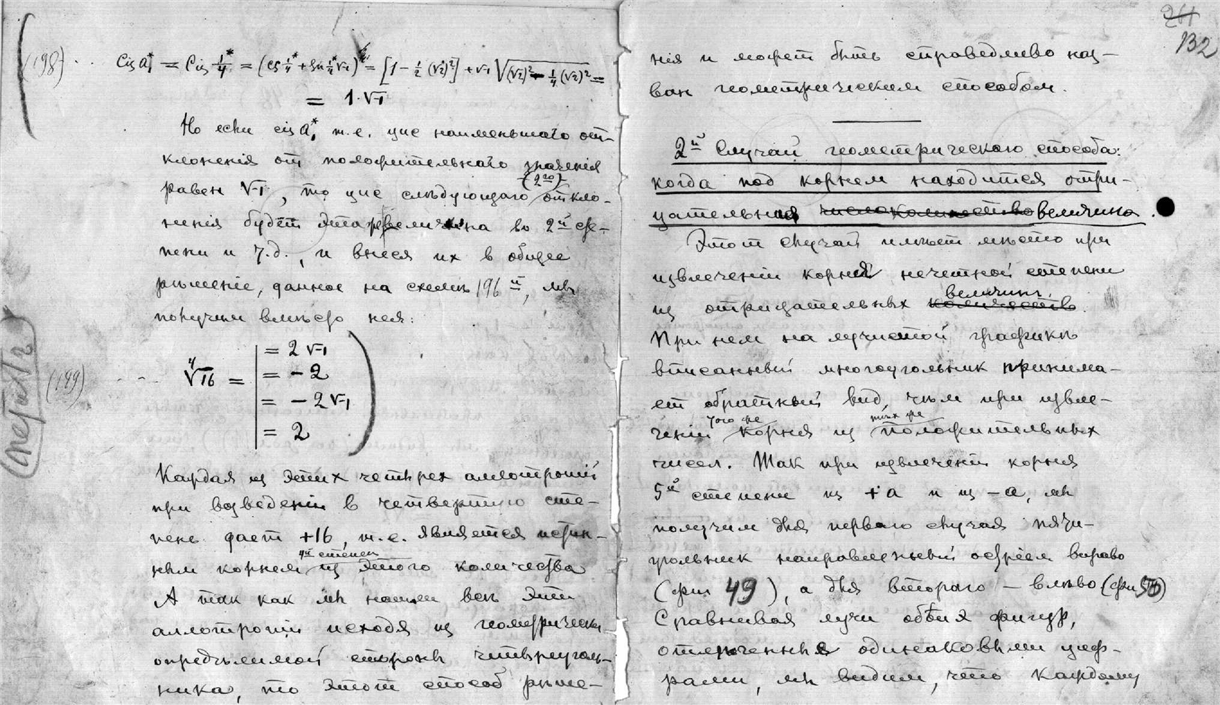 (198)
= 1·√-1
Но если cis a₁* т.е. цис наименьшаго от-
клоненія от положительнаго значенія
равен √-1, то цис слѣдующаго (2го) откло-
ненія будет эта же величина во 2й сте-
пени и т.д., и внеся их в общее
рѣшеніе, данное на схемѣ 196й, мы
получим вмѣсто нея:
(199) ⁴√16 = | = 2√-1
= -2
= -2√-1
= 2
Каждая из этих четырех аллотропій
при возведеніи в четвертую сте-
пень дает +16, т.е. является истин-
ным корнем 4й степени из этого количества
А так как мы нашли всѣ эти
аллотропіи исходя из геометрически
опредѣлимой стороны четыреуголь-
ника, то этот способ рѣше-
261
132
нія и может быть справедливо наз-
ван геометрическим способом.
2й Случай геометрического способа:
когда под корнем находится отри-
цательная величина.
Этот случай имѣет мѣсто при
извлеченіи корней нечетной степени
из отрицательных величин.
При нем на лучистой графикѣ
вписанный многоугольник принима-
ет обратный вид, чѣм при извле-
ченіи того же корня из тѣх же положительных
чисел. Так при извлеченіи корня
5й степени из +a и из -a, мы
получим для перваго случая пяти-
угольник направленный остріем вправо
(фиг 49), а для второго – влѣво (фиг 50)
Сравнивая лучи обѣих фигур,
отмѣченные одинаковыми циф-
рами, мы видим, что каждому